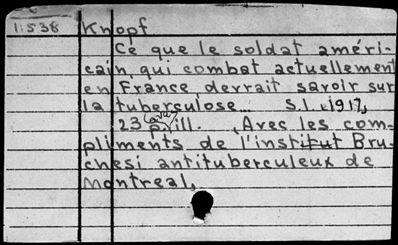 1:538 Knopf
Ce que le soldat améri-
cain qui combat actuellement
en France devrait savoir sur
la tuberculose. S.l. 1917,
23 p. ill. Avec les com-
pliments de l'institut Bru-
chesi antituberculeux de
Montreal,